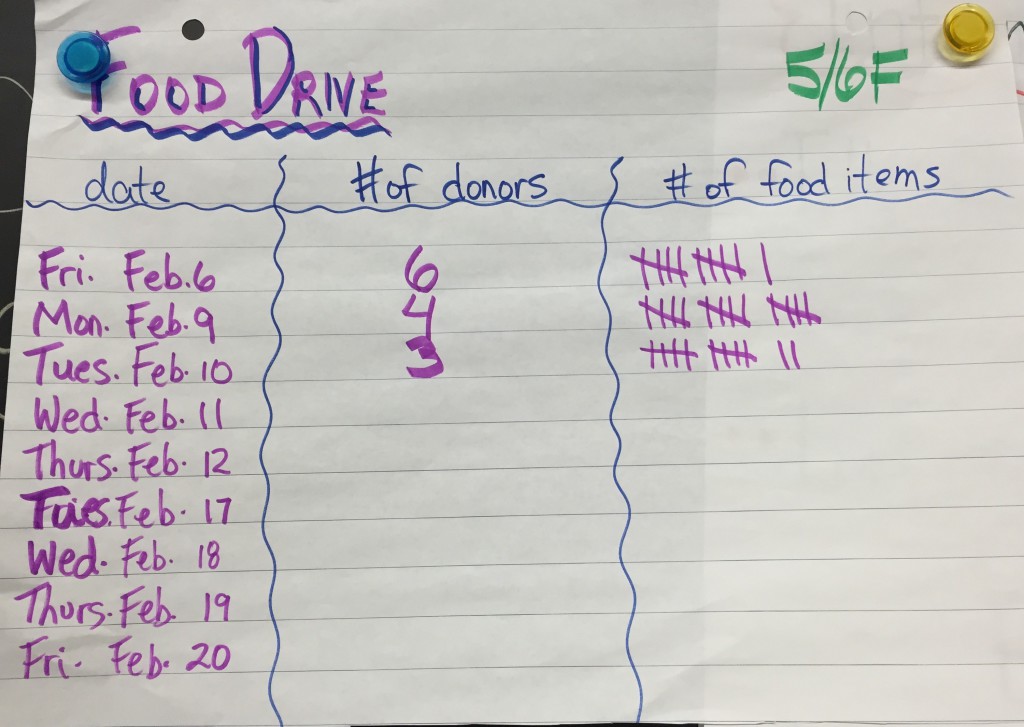 FOOD DRIVE 5/6F
date # of donors # of food items
Fri. Feb. 6 6
Mon. Feb. 9 4
Tues. Feb. 10 3
Wed. Feb. 11
Thurs. Feb. 12
Tues. Feb. 17
Wed. Feb. 18
Thurs. Feb. 19
Fri. Feb. 20